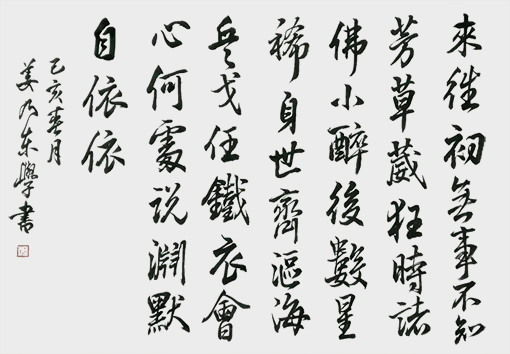 來往初無事不知
芳草葳狂時諸
佛小醉後數星
稀身世齊漚海
兵戈任鐵衣會
心何處說淵默
自依依
己亥春月
姜乃東學書